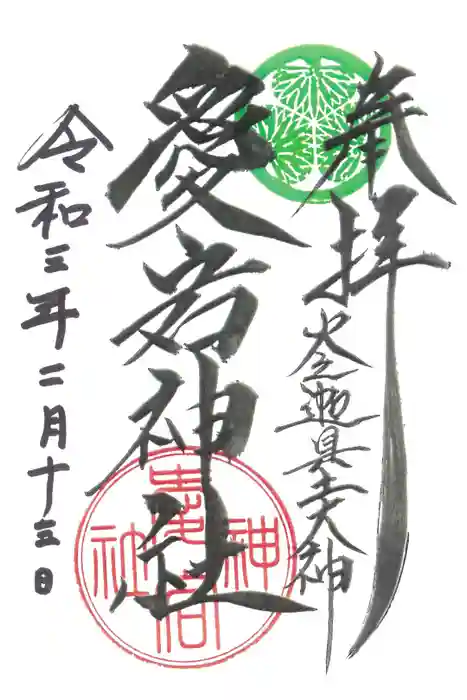 奉拝
火之迦具土大神
愛宕神社
愛宕神社
令和三年二月十三日